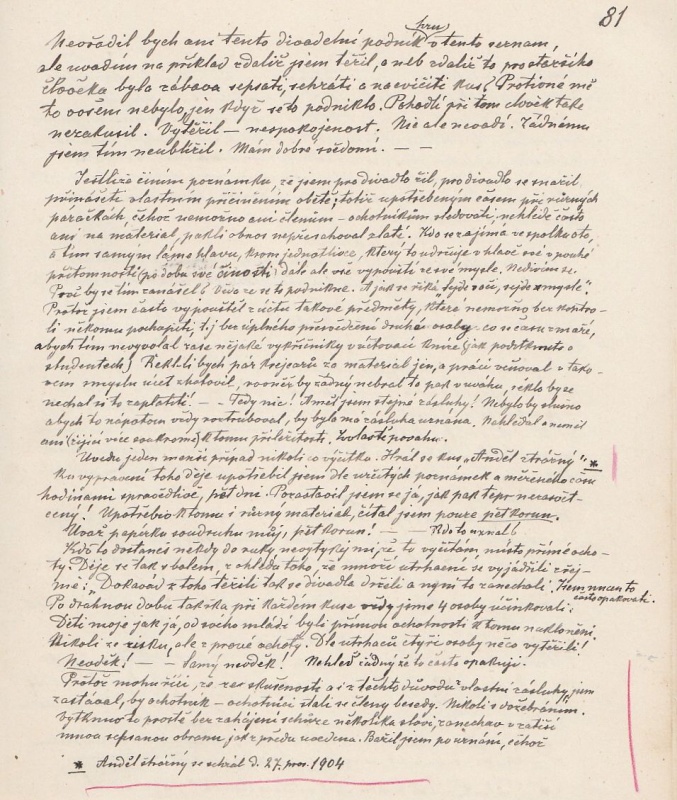 81
hru
Neořadil bych ani tento divadelní podnik v tento seznam,
ale uvadím na příklad zdaliž jsem těžil, a neb zdaliž to pro staršího
člověka byla zábava sepsati, sehráti a nacvičiti kus? Protivné mě
to ovšem nebylo, jen když se to podniklo. Pohodlí při tom člověk také
nezakusil. Vytěžil — nespokojenost. Nic ale nevadí. Žádnému
jsem tím neublížil. Mám dobré svědomí. — —
Jestliže činím poznámku, že jsem pro divadlo žil, pro divadlo se snažil
přinášeti vlastním přičiněním oběti, totiž upotřebeným časem při různých
paračkách, čehož nemožno ani členům - ochotníkům sledovati, nehledě často
ani na material, pakli obnos nepřesahoval zlatý. Kdo se zajímá ve spolku o to,
a tím samým láme hlavu, krom jednotlivce, který to udržuje v hlavě své v pouhé
přítomnosti (po dobu své činosti) dále ale vše vypouští ze své mysle. Nedivím se.
Proč by se tím zanášel? Však se to podnikne. A jak se říká "sejde s očí, sejde s mysle".
Protož jsem často vypouštěl z účtu takové předměty, které nemožno bez kontro-
li někomu pochopiti, t. j. bez úplného přesvědčení druhé osoby co se času zmaří,
abych tím nevyvolal zase nějaké vykřičníky v účtovací knize (jak podotknuto o
studentech) Řekl-li bych pár krejcarů za material jen, a práci věnoval a tako-
vém smyslu účet zhotovil, rovněž by žádný nebral to pak v úvahu, řeklo by se
nechal si to zaplatiti. — — Tedy nic! A měl jsem stejné zásluhy! Nebylo by slušno
abych to nápotom vždy roztruboval, by byla má zásluha uznána. Nehledal a neměl
ani (žijíc více soukromě) k tomu příležitosti. Zvláště povahu.
Uvedu jeden menší případ nikoli co výčitku. Hrál se kus „Anděl strážný" *
Ku vypravení toho děje upotřebil jsem dle určitých poznámek a měřeného času
hodinami spravedlivě, pět dní. Pozastavil jsem se já, jak pak tepr nezasvět-
cený! Upotřebiv k tomu i různý material, čítal jsem pouze pět korun.
Uvaž papírku soudruhu můj, pět korun! — — Kdo to uzná?
Kdo to dostanes někdy do ruky neostýkej mi, že to vyčítám, místo přímé ocho-
ty. Děje se tak s bolem, z ohledu toho, že mnozí utrhační se vyjádřili zřej-
mě: „Dokavad z toho těžili tak se divadla drželi a nyní to zanechali. Jsem nucen to
často opakovati.
Po drahnou dobu takřka při každém kuse vždy jsme 4 osoby účinkovali.
Děti moje jak já, od socho mládí byli přímou ochotností k tomu nakloněni.
Nikoli ze zisku, ale z prové ochoty. Dle utrhaců čtyři osoby něco vytěžili!
Nevděk! — — Samý nevděk! Nehleď žádný že to často opakuji.
Protož mohu říci, že ze zkušenosti a i z těchto důvodů vlastní zásluhy, jsem
zastával, by ochotník - ochotníci stali se členy besedy. Nikoli s dožebráním.
Vytknuv to prostě bez zahájení schůze několika slovy, zanechav v zatiší
mnou sepsanou obranu jak z předu uvedena. Bažil jsem po uznání, čehož
* Anděl strážný se sehrál d. 27. pros. 1904